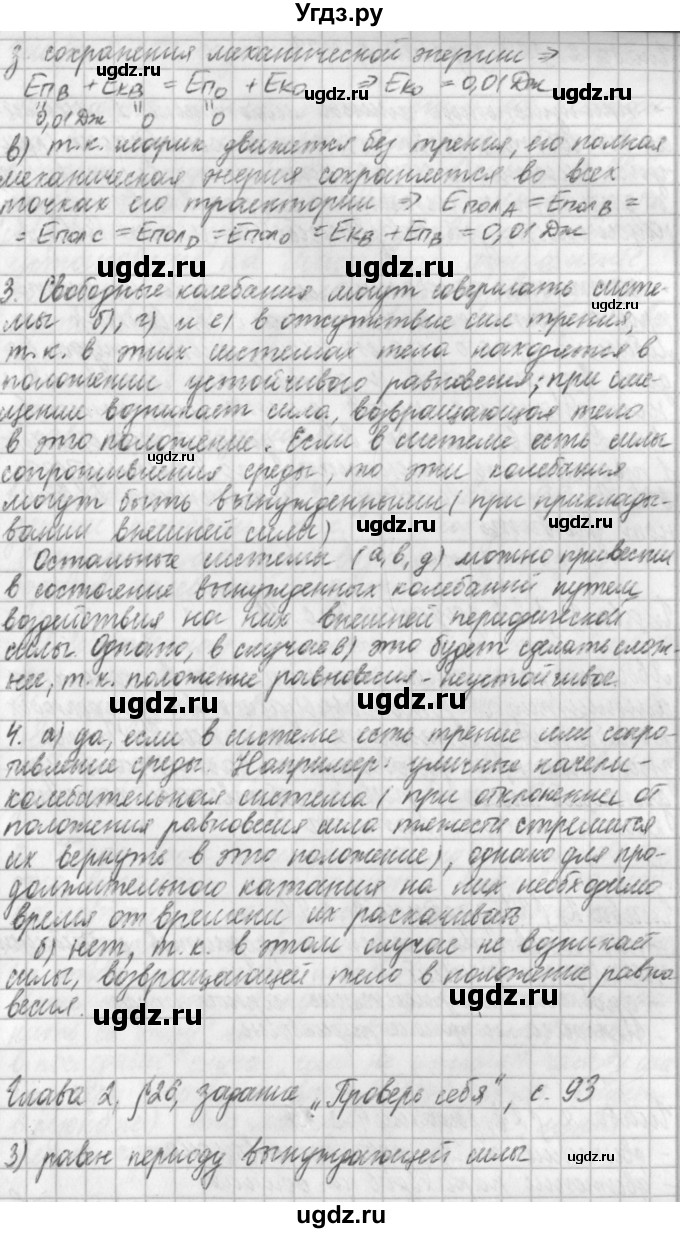 Угдз.ру
з. сохранения механической энергии ⇒
EпB + EкB = Eп0 + Eк0 ⇒ Eк0 = 0,01 Дж
0,01 Дж 0 0
в) т.к. шарик движется без трения, его полная
механическая энергия сохраняется во всех
точках его траектории ⇒ EполA = EполB =
= EполC = EполD = Eпол0 = EкB + EпB = 0,01 Дж
ugdz.ru
3. Свободные колебания могут совершать систе-
мы б), г) и е) в отсутствие сил трения,
т.к. в этих системах тела находятся в
положении устойчивого равновесия; при сме-
щении возникает сила, возвращающая тело
в это положение. Если в системе есть силы
сопротивления среды, то эти колебания
могут быть вынужденными (при прикладо-
вании внешней силы)
Остальные системы (а, в, д) можно привести
в состояние вынужденных колебаний путем
воздействия на них внешней периодической
силы. Однако, в случае в) это будет сделать слож-
нее, т.к. положение равновесия - неустойчивое.
ugdz.ru
4. а) да, если в системе есть трение или сопро-
тивление среды. Например: уличные качели -
колебательная система (при отклонении от
положения равновесия сила тяжести стремится
их вернуть в это положение), однако для про-
должительного катания на них необходимо
время от времени их раскачивать
б) нет, т.к. в этом случае не возникает
силы, возвращающей тело в положение равно
весия.
ugdz.ru
Глава 2, §26, задание „Проверь себя", с. 93
3) равен периоду вынуждающей силы
ugdz.ru